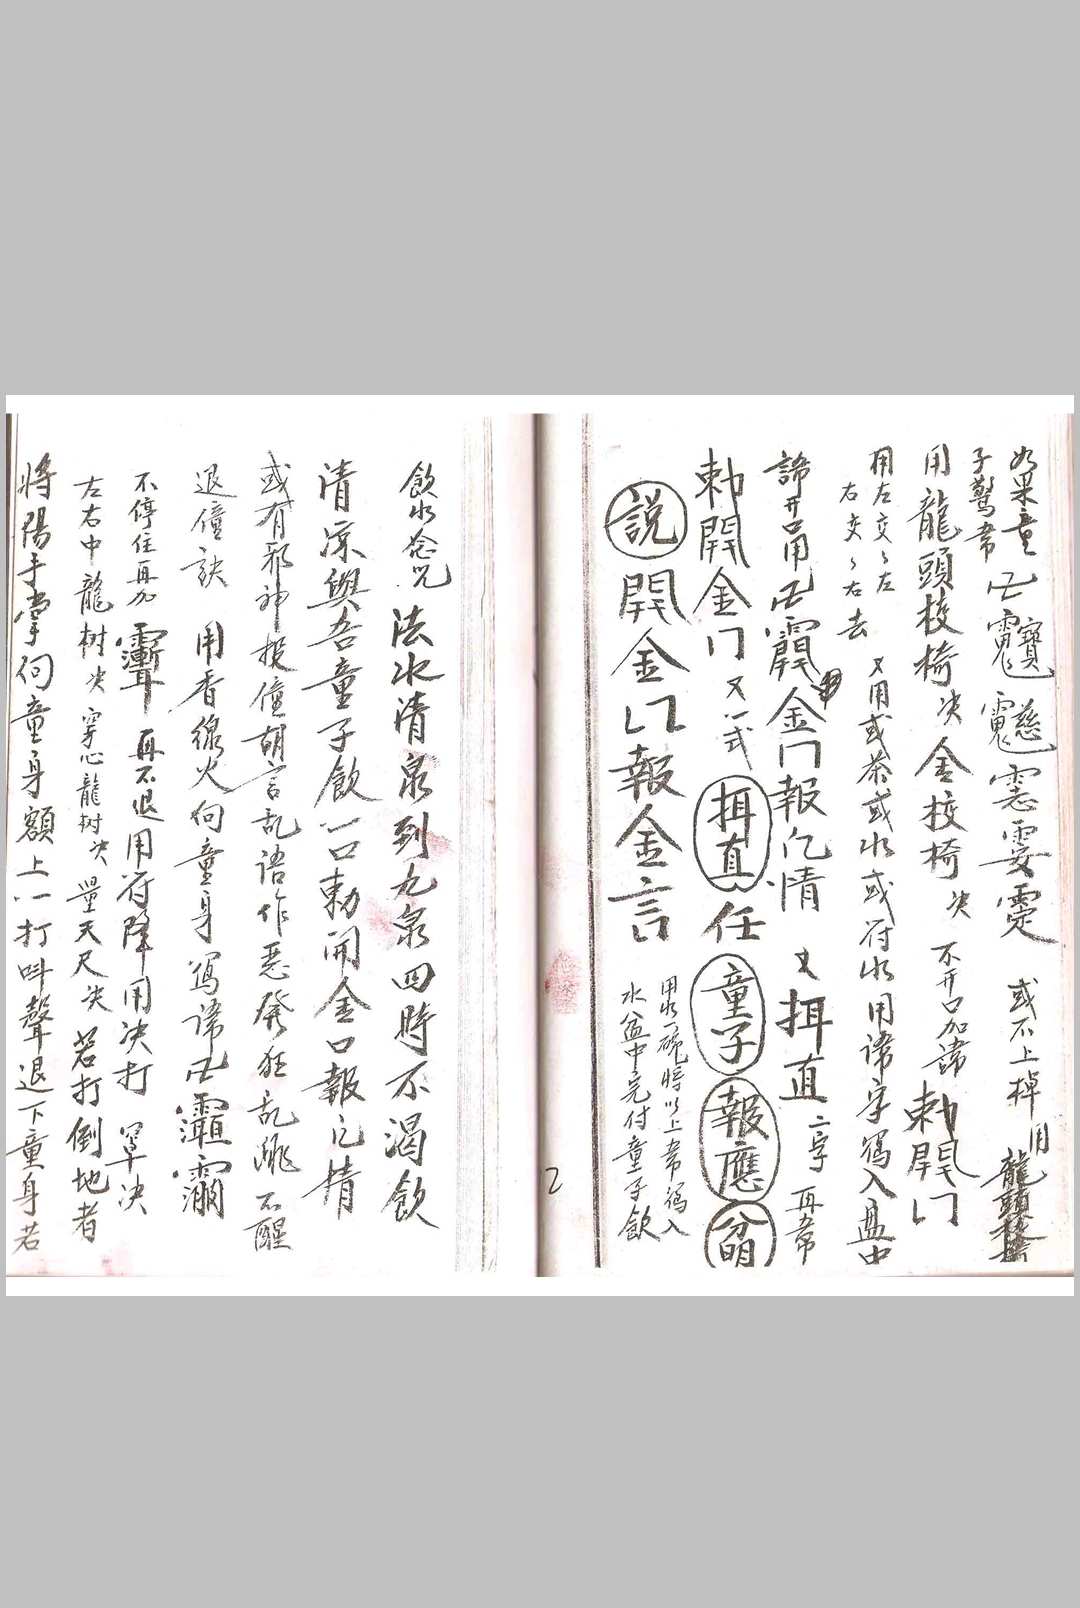 如果童子驚常卍
或不上棹用龍頭
用龍頭校椅决金校椅决不开口加諱勅開门
用左交々左
右交々右去
又用或茶或水或符水用諱字寫入盘中
諱开口用卍金门報情又挕直二字再常
勅開金门又一式挕直任童子報應
用水一碗將以上常寫入
水盆中完付童子飲
説開金口報金言
2
飲水念咒法水清泉到九泉四時不渴飲
清凉與吾童子飲一口勅開金口報情
或有邪神投僮胡言乱语作恶發狂乱跳不醒
退僮訣用香線火向童身寫諱卍
不停住再加再不退用符降用决打决
左右中龍树决穿心龍树决量天尺决若打倒地者
將陽手掌向童身額上一打呌聲退下童身若